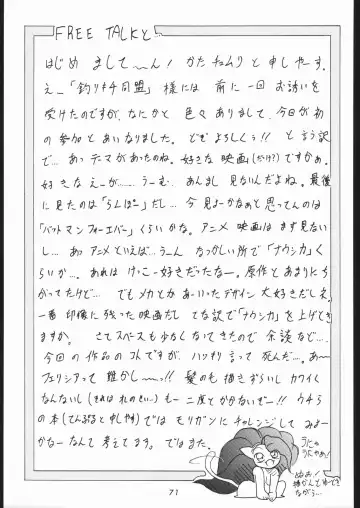 FREE TALKと…
はじめ まして〜ん! かたチュムリと申しやーす。
え_「釣りキチ同盟」様には 前に一回お誘いを
受けたのですが、なにかと 色々 ありまして、今回が初
の参加と あいなりました。どぞよろしくぅ!! と言う訳
で…あっテーマがあったのね。好きな映画(だけ?)ですかぁ。
好きな えーが……うーむ、あんまし 見ないんだよね。最後
に見たのは「らんぼー」だし…今見よーかなぁと思ってんのは
「バットマンフォーエバー」くらいかな。アニメ 映画は まず見ない
し…あっアニメといえば…うーん なつかしい所で「ナウシカ」く
らいか…。あれは けっこー好きだったなー。原作と あまりにち
がってたけど… でもメカとか あーいったデザイン 大好きだしネ。
一番 印象に残った映画だし てな訳で「ナウシカ」を上げとき
ますか。 さてスペースも少なくなってきたので 余談など…、
今回の作品のコトですが、ハッキリ言って 死んだ…。あ〜
フェリシアって 難かし〜っ!! 髪のも描きずらいし カワイく
なんないし(それはオレのせい…)もー二度とかかないぞー!! ウチら
の本(てんぷると申しやす)では モリガンにチャレンジして みよー
かなーなんて 考えてます。ではまた。
うにゃ
うにゃゃぁ!
ぬぉ!
描かんとゆっておき
ながらぅ…
71